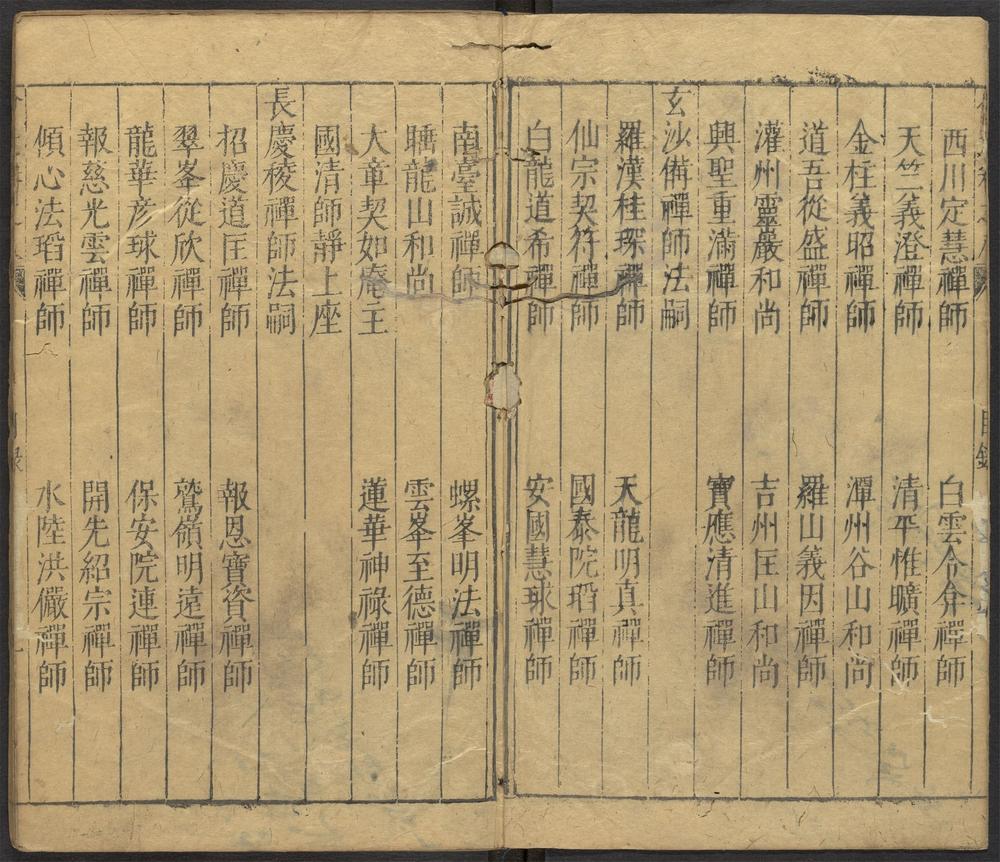 西川定慧禪師　白雲令弇禪師
天竺義澄禪師　清平惟曠禪師
金柱義昭禪師　潭州谷山和尚
道吾從盛禪師　羅山義因禪師
灌州靈巖和尚　吉州匡山和尚
興聖重滿禪師　寶應清進禪師
玄沙備禪師法嗣
羅漢桂琛禪師　天龍明真禪師
仙宗契符禪師　國泰院瑫禪師
白龍道希禪師　安國慧球禪師
南臺誠禪師　螺峯明法禪師
睡龍山和尚　雲峯至德禪師
大章契如庵主　蓮華神祿禪師
國清師靜上座
長慶稜禪師法嗣
招慶道匡禪師　報恩寶資禪師
翠峯從欣禪師　鷲嶺明遠禪師
龍華彥球禪師　保安院連禪師
報慈光雲禪師　開先紹宗禪師
傾心法瑫禪師　水陸洪儼禪師
目錄